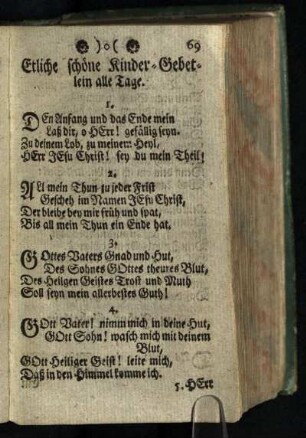 )o( 69
Etliche schöne Kinder-Gebet-
lein alle Tage.
1.
DEn Anfang und das Ende mein
Laß dir, o HErr! gefällig seyn.
Zu deinem Lob, zu meinem Heyl,
HErr JEsu Christ! sey du mein Theil!
2.
All mein Thun zu jeder Frist
Gescheh im Namen JEsu Christ,
Der bleibe bey mir früh und spat,
Bis all mein Thun ein Ende hat.
3.
GOttes Vaters Gnad und Hut,
Des Sohnes GOttes theures Blut,
Des Heilgen Geistes Trost und Muth
Soll seyn mein allerbestes Guth!
4.
GOtt Vater! nimm mich in deine Hut,
GOtt Sohn! wasch mich mit deinem
Blut,
GOtt Heiliger Geist! leite mich,
Daß in den Himmel komme ich.
5. HErr